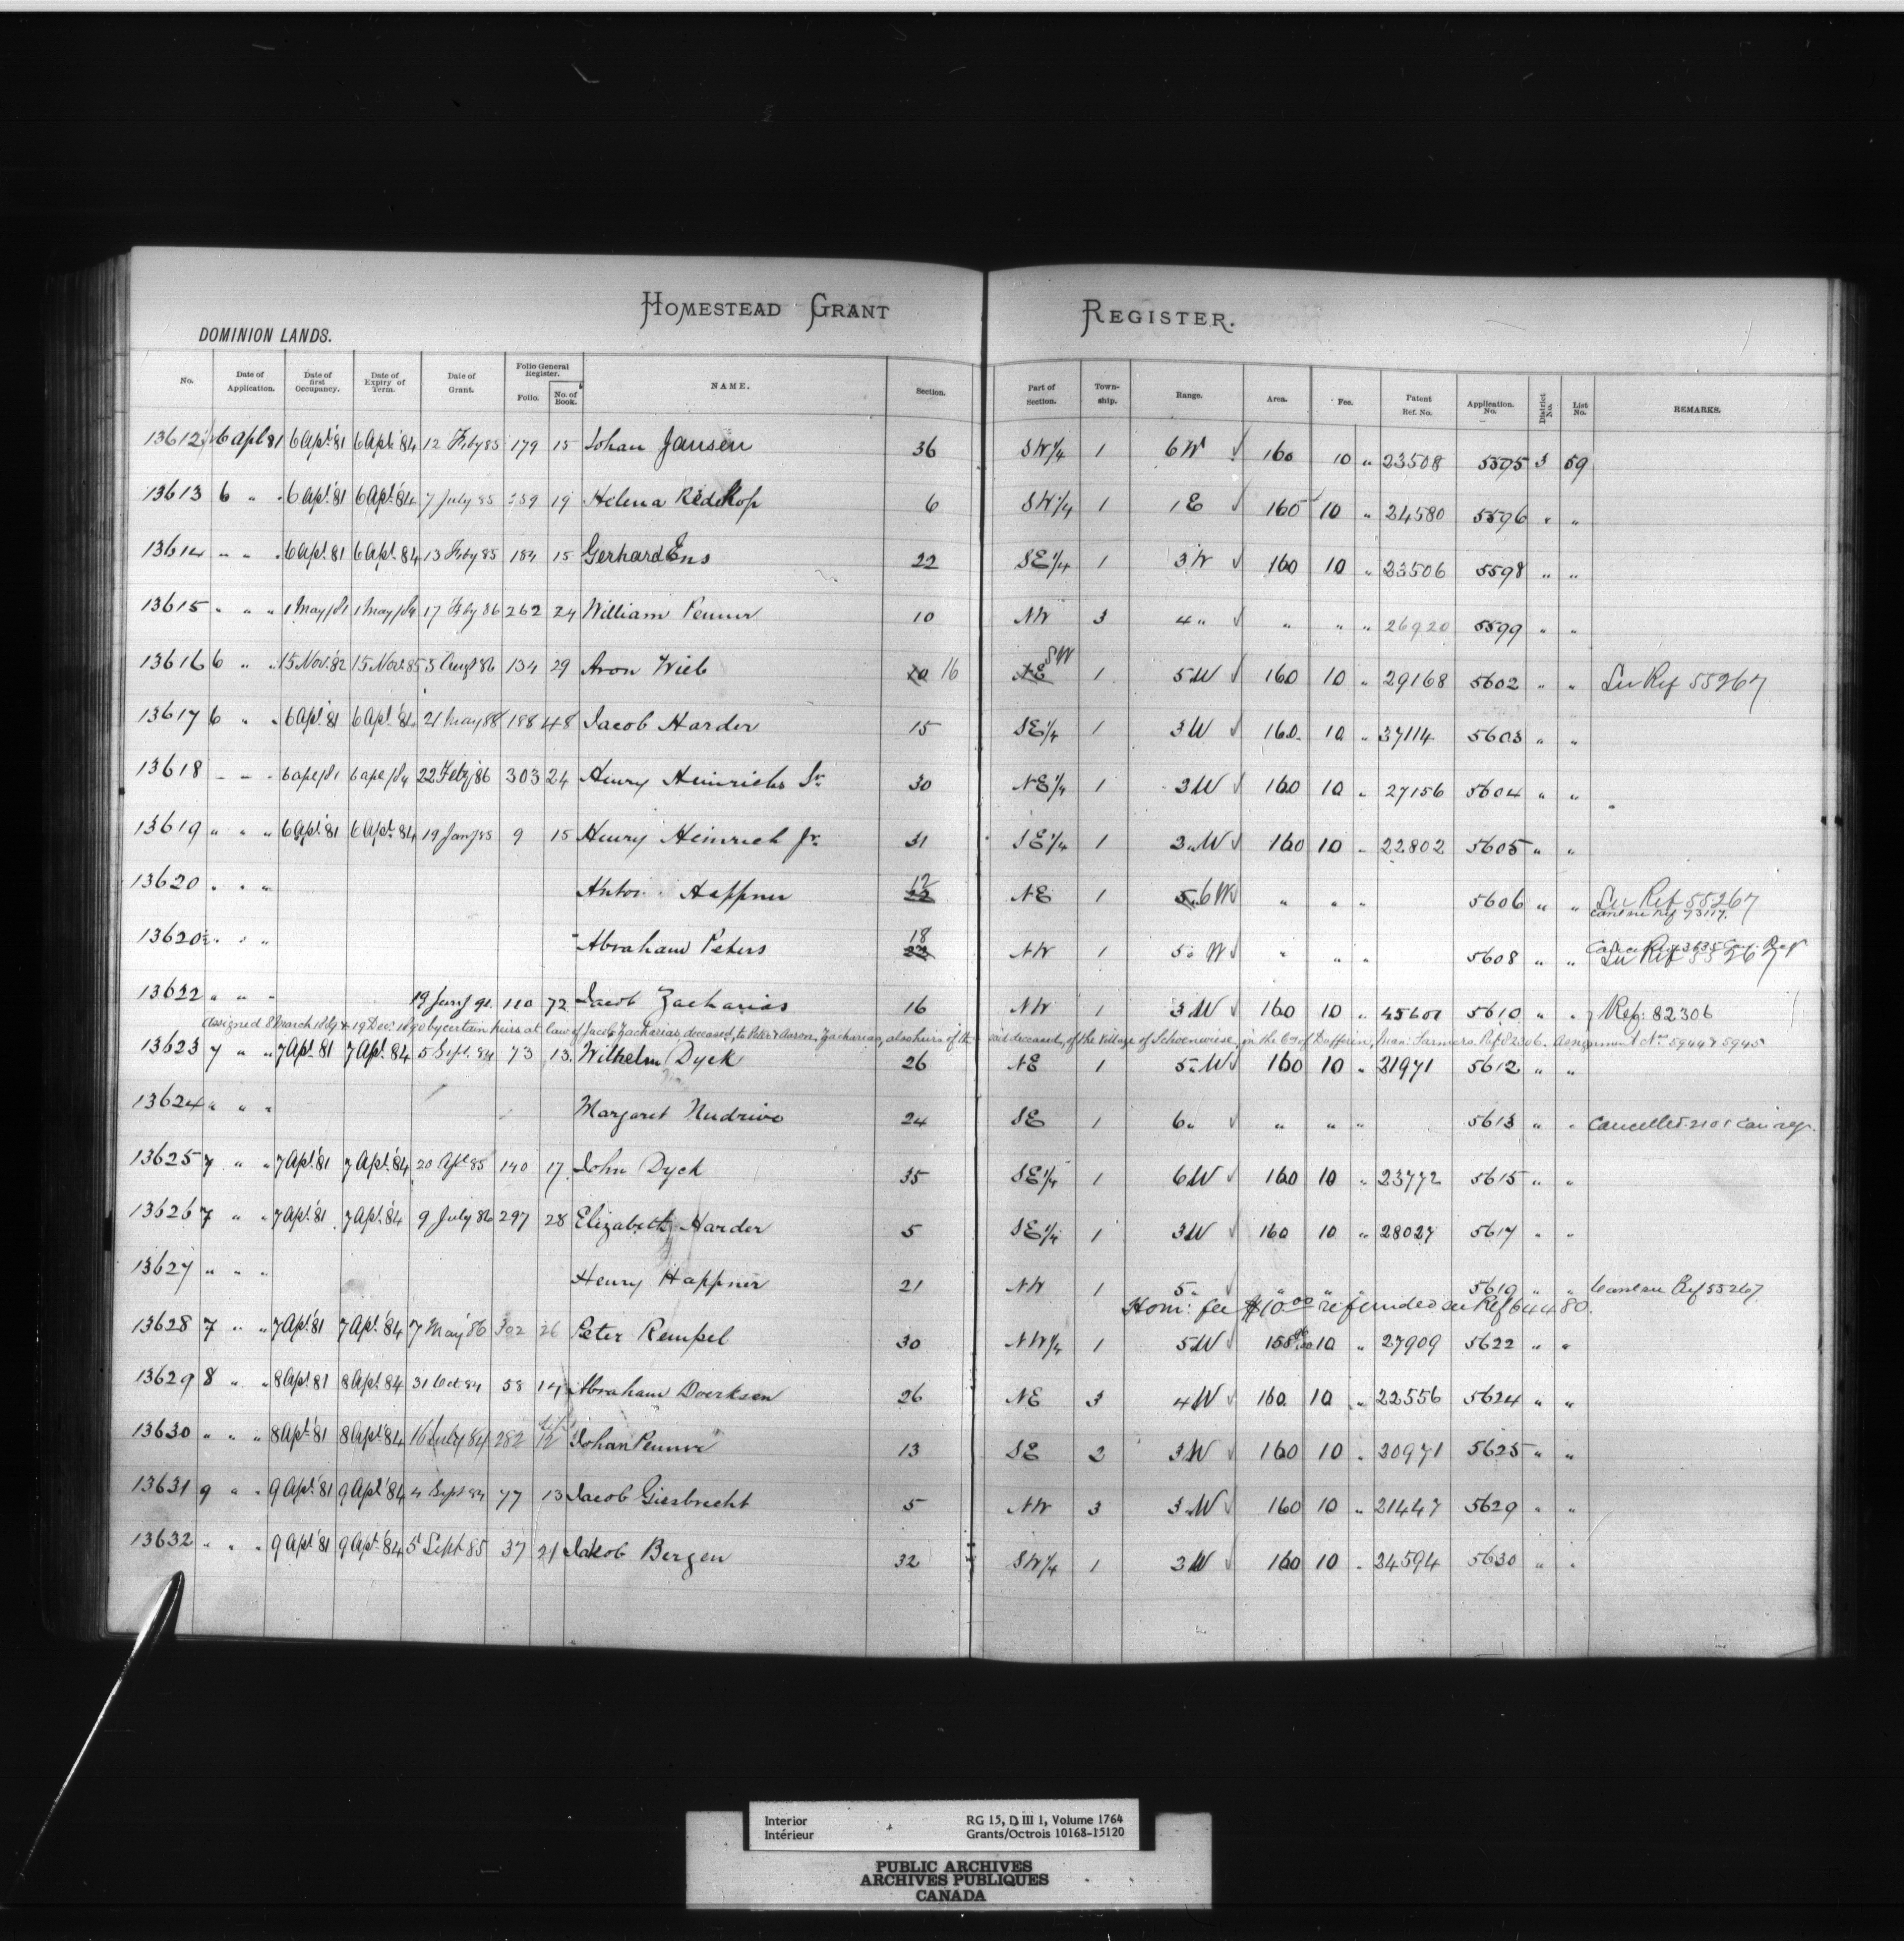 HOMESTEAD GRANT REGISTER.
DOMINION LANDS.
No. Date of Application. Date of first Occupancy. Date of Expiry of Term. Date of Grant. Folio General Register. Folio. No. of Book. NAME. Section. Part of Section. Township. Range. Area. Fee. Patent Ref. No. Application No. District No. List No. REMARKS.
13612 6 Apl 81 6 Apl. '81 6 Apl. '84 12 Feby 85 179 15 Johan Jansen 36 SW 1/4 1 6 W √ 160 10 " 23508 5595 3 59
13613 6 " " 6 Apl. '81 6 Apl. '84 7 July 85 259 19 Helena Redekop 6 SW 1/4 1 1 E √ 160 10 " 24580 5596 " "
13614 " " " 6 Apl. 81 6 Apl. 84 13 Feby 85 184 15 Gerhard Ens 22 SE 1/4 1 3 W √ 160 10 " 23506 5598 " "
13615 " " " 1 May /81 1 May /84 17 Feby 86 262 24 William Penner 10 NW 3 4 " √ " " " 26920 5599 " "
13616 6 " " 15 Nov. '82 15 Nov. 85 3 Augt 86 134 29 Aron Wieb 10 16 NE SW 1 5 W √ 160 10 " 29168 5602 " " See Ref 55267
13617 6 " " 6 Apl. '81 6 Apl. '84 21 May 88 188 48 Jacob Harder 15 SE 1/4 1 3 W √ 160 10 " 37114 5603 " "
13618 " " " 6 apl /81 6 apl /84 22 Feby '86 303 24 Henry Heinrichs Sr. 30 NE 1/4 1 3 W √ 160 10 " 27156 5604 " "
13619 " " " 6 Apl. '81 6 Apl. 84 19 Jany 85 9 15 Henry Heinrich Jr. 31 SE 1/4 1 3 " W √ 160 10 " 22802 5605 " "
13620 " " " Happner 12 NE 1 5 6 W √ " " " 5606 " " See Ref 55267
Canl see Ref 73117.
13620 1/2 " " " Abraham Peters 18 22 NW 1 5 " W √ " " " 5608 " " See Ref 55267
13622 " " " 19 Jany 91. 110 72 Jacob Zacharias 16 NW 1 3 W √ 160 10 " 45601 5610 " " Ref: 82306
Assigned 8 March 1889 & 19 Dec. 1890 by certain heirs at law of Jacob Zacharias, deceased, to Peter & Aaron Zacharias, also heirs of the said deceased, of the village of Schoenwiese, in the Co. of Dufferin, Man: Farmers. Ref 82306. Assignment Nos 5944 & 5945
13623 7 " " 7 Apl. 81 7 Apl. 84 5 Sept. 84 73 13. Wilhelm Dyck 26 NE 1 5 " W √ 160 10 " 21971 5612 " "
13624 " " " Margaret 24 SE 1 6 " √ " " " 5613 " " Cancelled. 2101 Can reg.
13625 7 " " 7 Apl. '81 7 Apl. '84 20 Apl 85 140 17. John Dyck 35 SE 1/4 1 6 W √ 160 10 " 23772 5615 " "
13626 7 " " 7 Apl. '81 7 Apl. '84 9 July 86 297 28 Elizabeth Harder 5 SE 1/4 1 3 W √ 160 10 " 28027 5617 " "
13627 " " " Henry Happner 21 NW 1 5 " √ " " " 5619 " " Canl see Ref 55267.
Hom: fee $10.00 refunded see Ref 64480.
13628 7 " " 7 Apl. 81 7 Apl. '84 7 May '86 302 26 Peter Rempel 30 NW 1/4 1 5 W √ 158 10 " 27909 5622 " "
13629 8 " " 8 Apl. 81 8 Apl. 84 31 Oct 84 58 14 Abraham Doerksen 26 NE 3 4 W √ 160 10 " 22556 5624 " "
13630 " " " 8 Apl. '81 8 Apl. '84 16 July 84 282 12 Johan Penner 13 SE 2 3 W √ 160 10 " 20971 5625 " "
13631 9 " " 9 Apl. '81 9 Apl. '84 4 Sept 84 77 13 Jacob Giesbrecht 5 NW 3 3 W √ 160 10 " 21447 5629 " "
13632 " " " 9 Apl. '81 9 Apl. '84 5 Sept 85 37 21 Jakob Bergen 32 SW 1/4 1 3 W √ 160 10 " 24594 5630 " "
Interior RG 15, D III 1, Volume 1764
Intérieur Grants/Octrois 10168-15120
PUBLIC ARCHIVES
ARCHIVES PUBLIQUES
CANADA